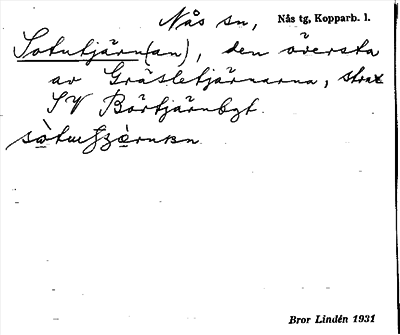 Nås sn, Nås tg, Kopparb. l.
Sotutjärn(an), den översta
av Gräsletjärnarna, strax
SV Börtjärnbgt.
Bror Lindén 1931